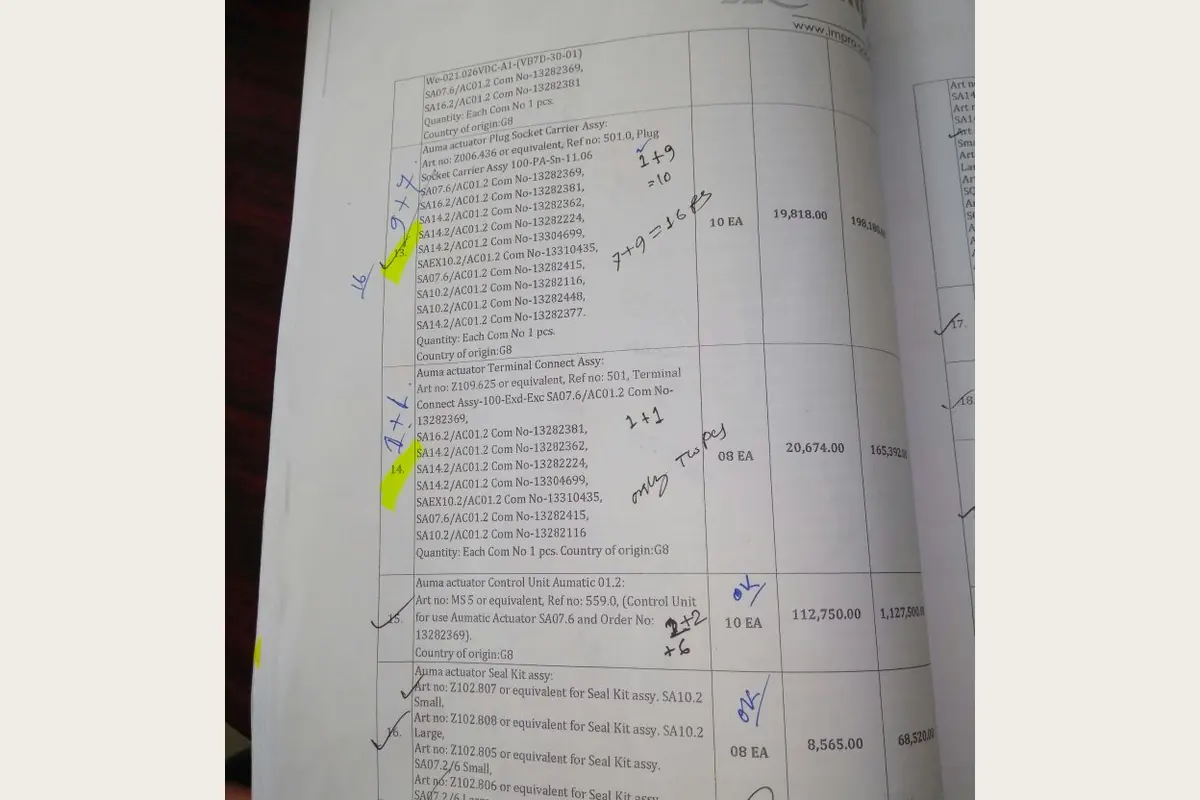 www.impro
We-021.026VDC-A1-(VB7D-30-01)
SA07.6/AC01.2 Com No-13282369,
SA16.2/AC01.2 Com No-13282381
Quantity: Each Com No 1 pcs.
Country of origin:G8
9+7
16
13.
Auma actuator Plug Socket Carrier Assy:
Art no: Z006.436 or equivalent, Ref no: 501.0, Plug
Socket Carrier Assy 100-PA-Sn-11.06
SA07.6/AC01.2 Com No-13282369,
SA16.2/AC01.2 Com No-13282381,
SA14.2/AC01.2 Com No-13282362,
SA14.2/AC01.2 Com No-13282224,
SA14.2/AC01.2 Com No-13304699,
SAEX10.2/AC01.2 Com No-13310435,
SA07.6/AC01.2 Com No-13282415,
SA10.2/AC01.2 Com No-13282116,
SA10.2/AC01.2 Com No-13282448,
SA14.2/AC01.2 Com No-13282377.
Quantity: Each Com No 1 pcs.
Country of origin:G8
1+9
=10
7+9=16 Ps
10 EA
19,818.00
198,180
1+1
14.
Auma actuator Terminal Connect Assy:
Art no: Z109.625 or equivalent, Ref no: 501, Terminal
Connect Assy-100-Exd-Exc SA07.6/AC01.2 Com No-
13282369,
SA16.2/AC01.2 Com No-13282381,
SA14.2/AC01.2 Com No-13282362,
SA14.2/AC01.2 Com No-13282224,
SA14.2/AC01.2 Com No-13304699,
SAEX10.2/AC01.2 Com No-13310435,
SA07.6/AC01.2 Com No-13282415,
SA10.2/AC01.2 Com No-13282116
Quantity: Each Com No 1 pcs. Country of origin:G8
1+1
only Two pcs
08 EA
20,674.00
165,392.0
15.
Auma actuator Control Unit Aumatic 01.2:
Art no: MS5 or equivalent, Ref no: 559.0, (Control Unit
for use Aumatic Actuator SA07.6 and Order No:
13282369).
Country of origin:G8
2+2
+6
OK
10 EA
112,750.00
1,127,500.0
16.
Auma actuator Seal Kit assy:
Art no: Z102.807 or equivalent for Seal Kit assy. SA10.2
Small,
Art no: Z102.808 or equivalent for Seal Kit assy. SA10.2
Large,
Art no: Z102.805 or equivalent for Seal Kit assy.
SA07.2/6 Small,
Art no: Z102.806 or equivalent for Seal Kit assy.
SA07.2/6 Large
OK
08 EA
8,565.00
68,520.0
Art n
SA14
Art r
SA1
Art
Sma
Art
La
17.
18.